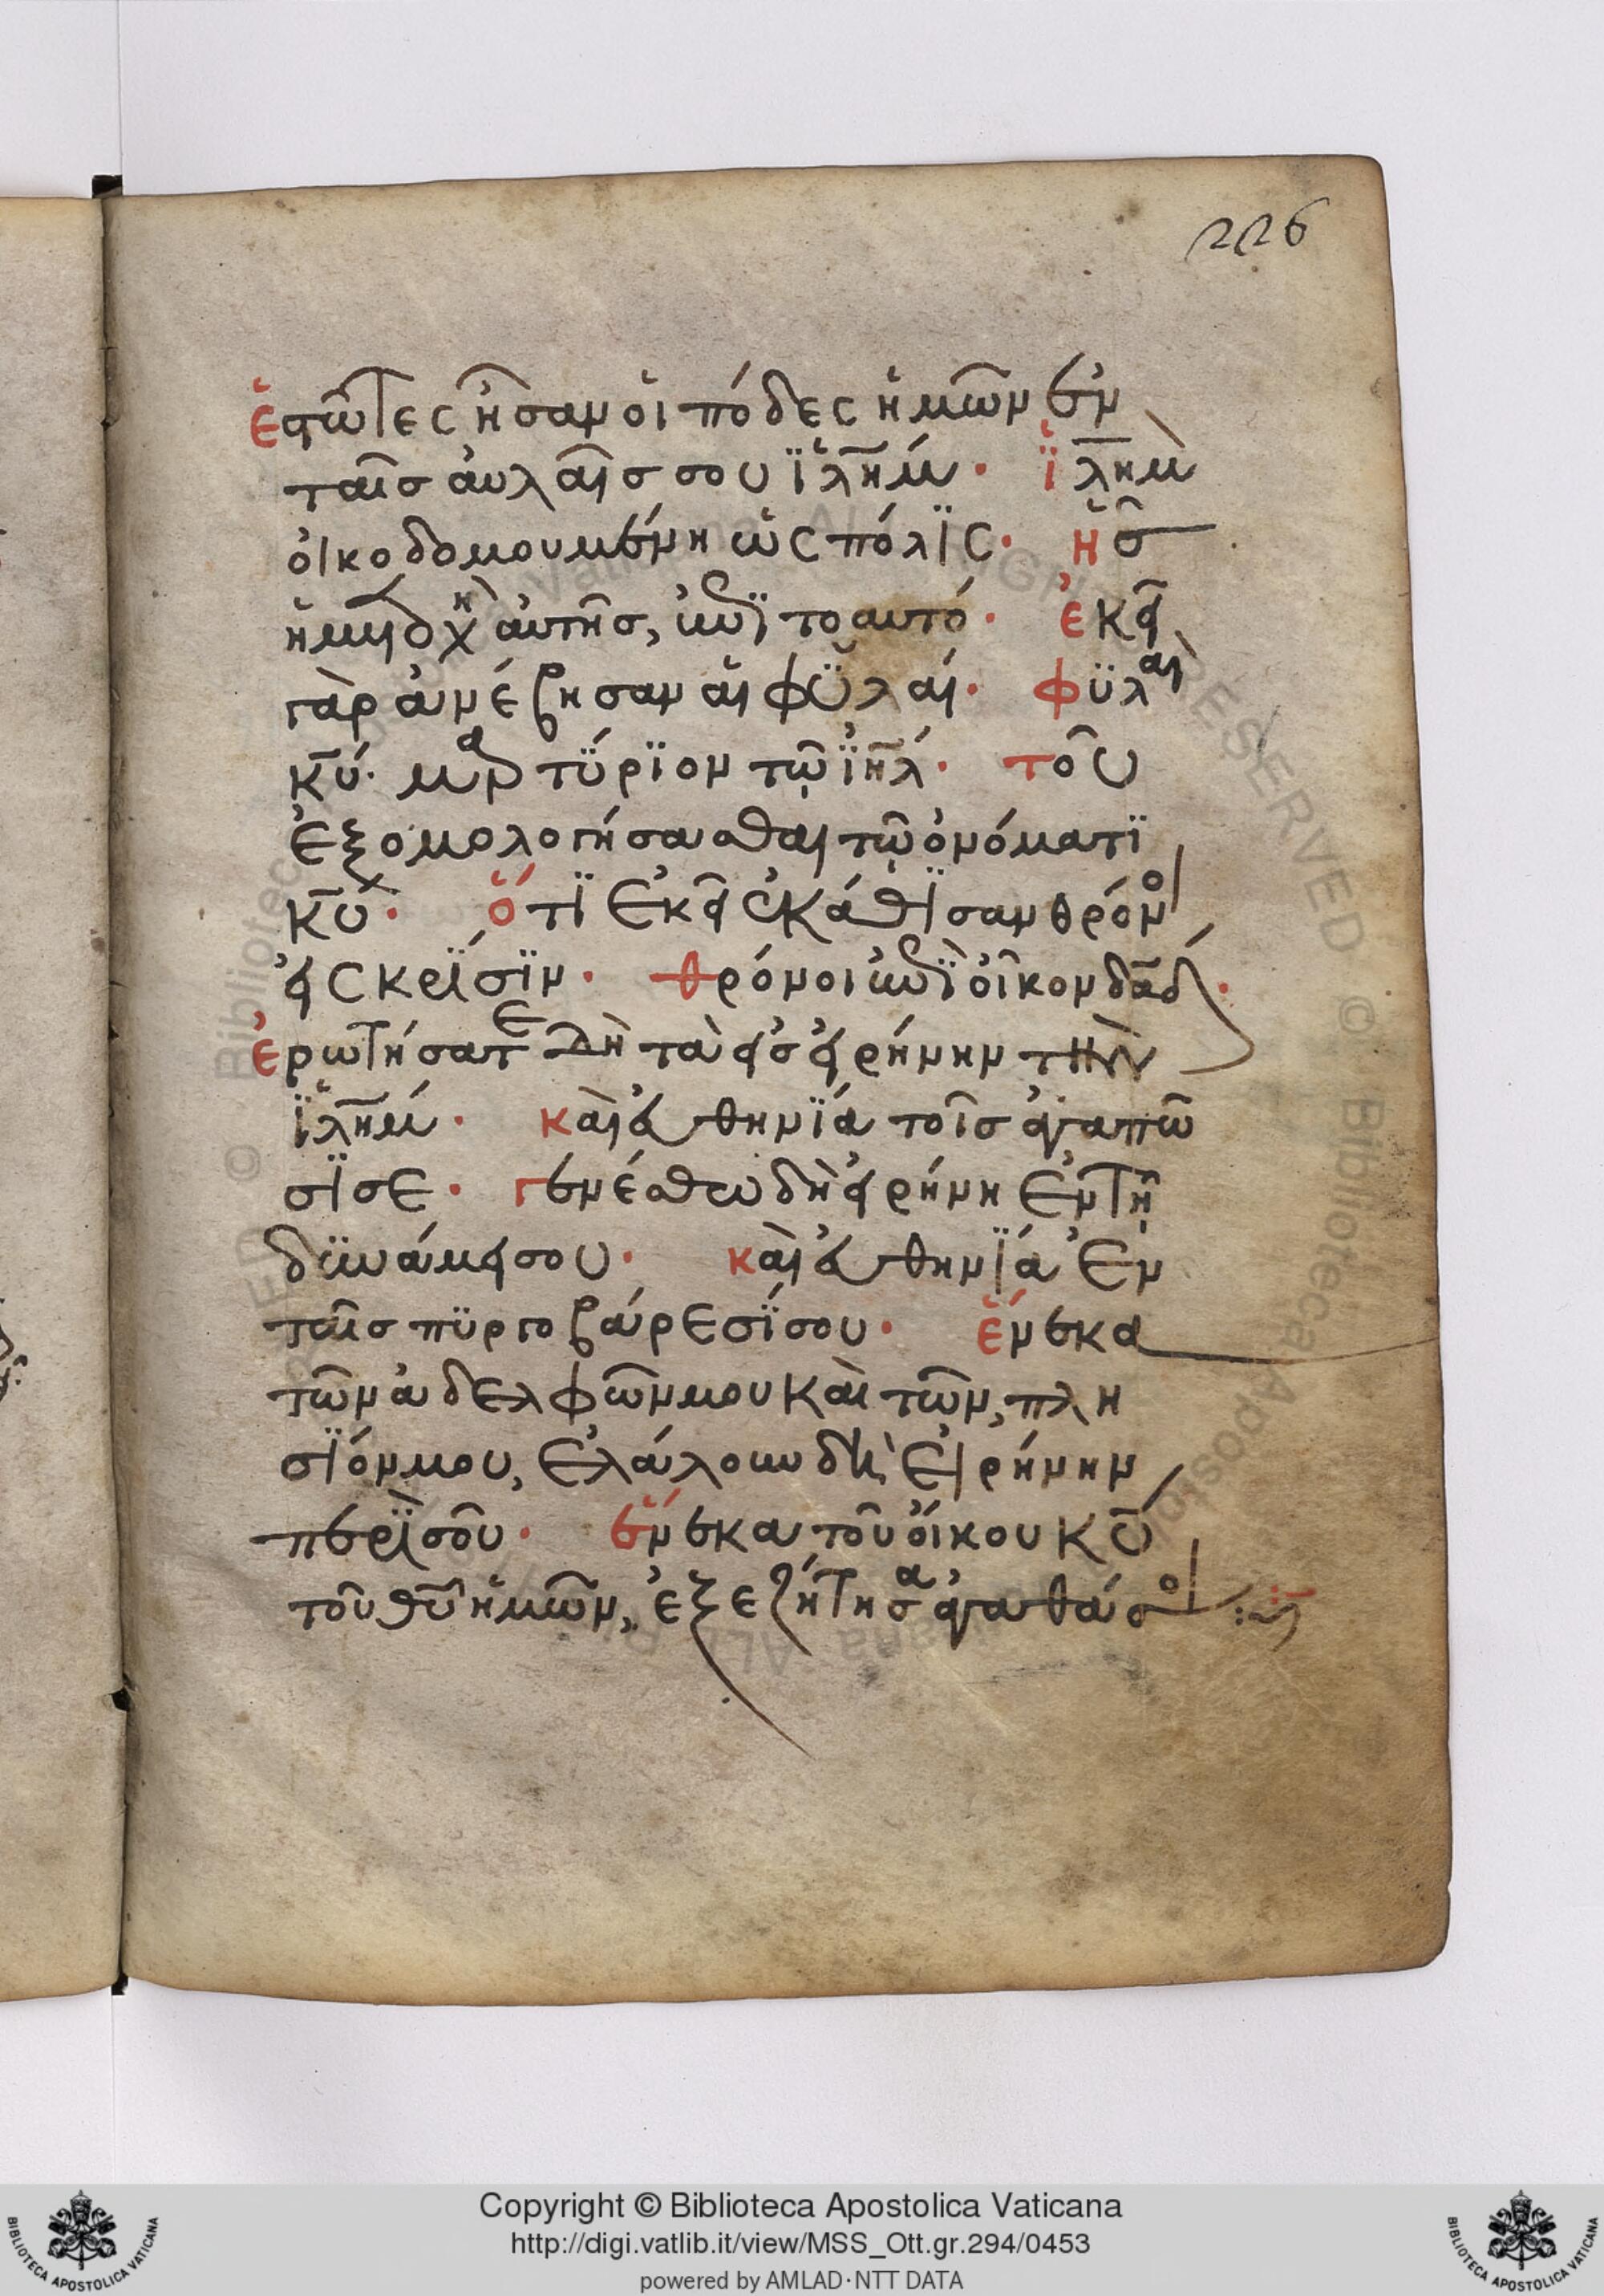 226
ἑστῶτες ἦσαν οἱ πόδες ἡμῶν ἐν
ταῖσ αὐλαῖσ σου ϊλῆμ· ϊλῆμ
οἰκοδομουμένη ὡς πόλϊς· ἧσ
ἡ μετοχὴ αὐτῆσ, ἐπῒ το αυτό· ἐκεῖ
γὰρ ἀνέβησαν αἱ φϋλαί· φϋλαὶ
κ̅υ̅· μαρτύρϊον τῷ ϊη̅λ· τοῦ
ἐξομολογήσασθαι τῷ ὀνόματϊ
κ̅υ̅· ὅτϊ ἐκεῖ ἐκάθϊσαν θρόνοι
εἰς κρίσϊν· θρόνοι ἐπῒ οἶκον δα̅δ·
ἐρωτήσατε δὴ τὰ εἰσ εἰρήνην τὴν
ϊλῆμ· καὶ εὐθηνία τοῖσ ἀγαπῶ
σϊ σε· γενέσθω δὴ εἰρήνη ἐν τῇ
δϋνάμει σου· καὶ εὐθηνία ἐν
ταῖσ πϋργοβάρεσΐ σου· ἕνεκα
τῶν ἀδελφῶν μου καὶ τῶν, πλη
σϊόν μου, ἐλάλουν δὴ εἰρήνην
περῒ σοῦ· ἕνεκα τοῦ οἴκου κ̅υ̅
τοῦ θ̅υ̅ ἡμῶν, ἐξεζήτησα ἀγαθά σοι
Copyright © Biblioteca Apostolica Vaticana
http://digi.vatlib.it/view/MSS_Ott.gr.294/0453
powered by AMLAD·NTT DATA
BIBLIOTECA APOSTOLICA VATICANA
BIBLIOTECA APOSTOLICA VATICANA